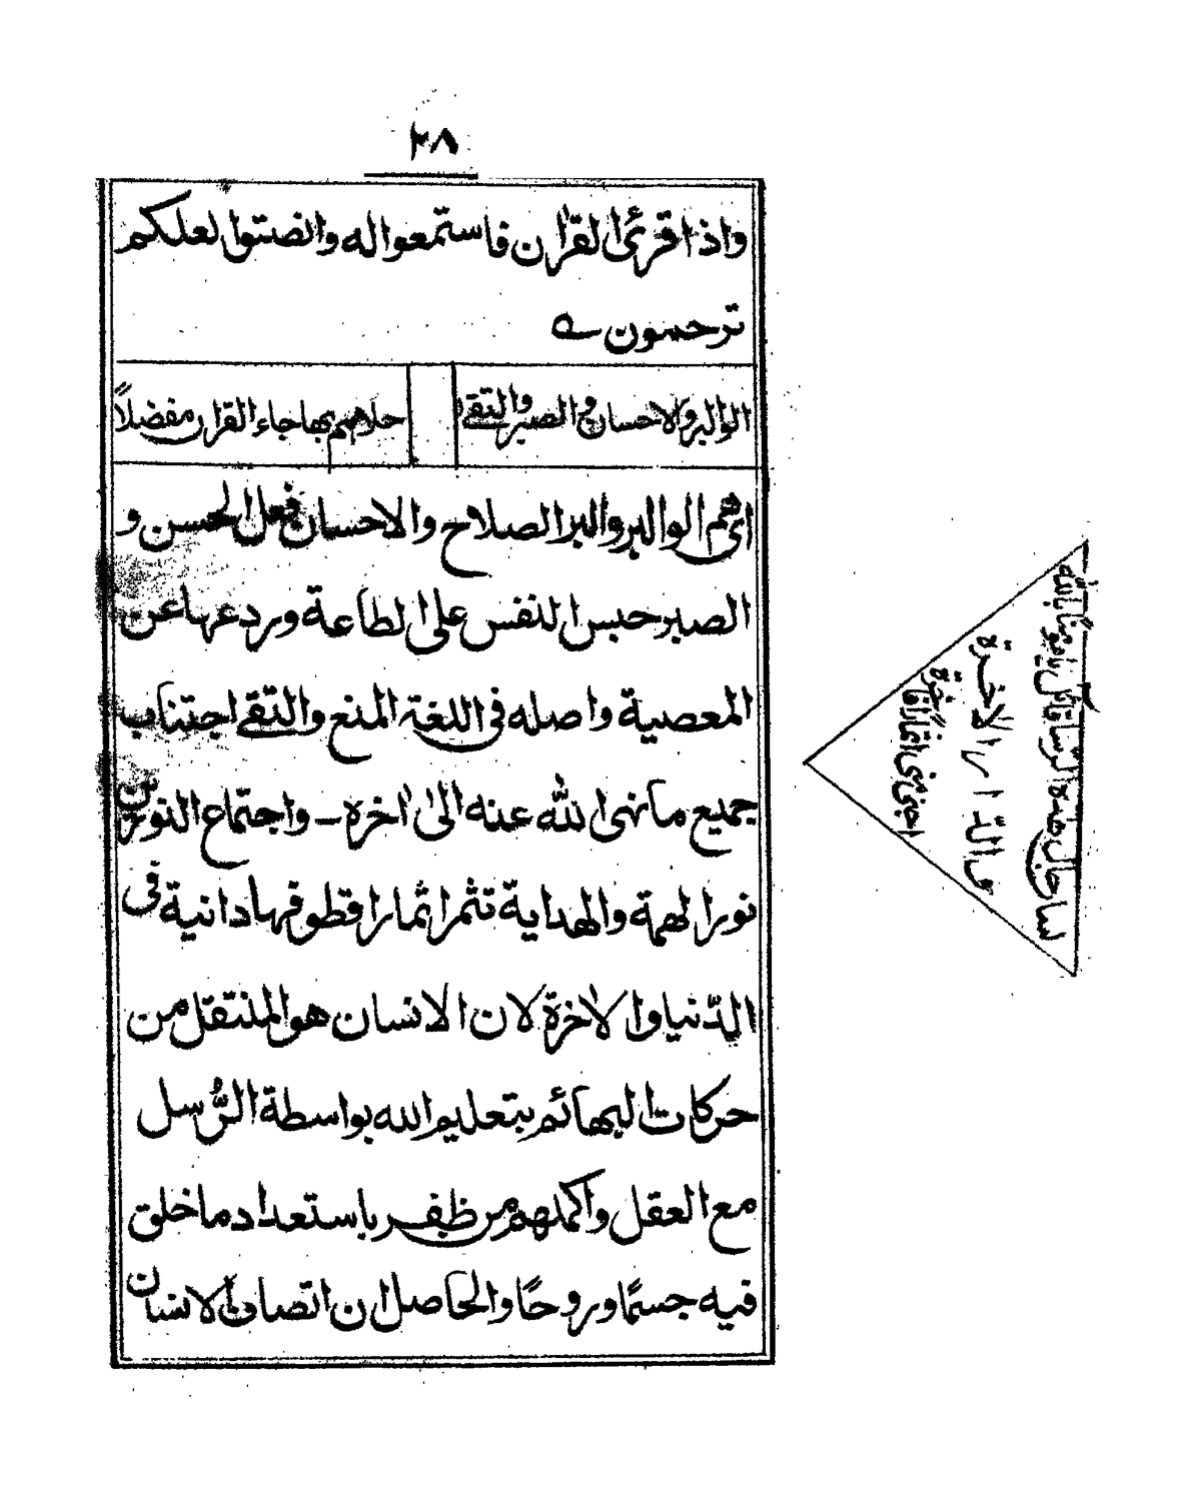 ٢٨
واذا قرئ القرٰان فاستمعوا له وانصتوا لعلكم
ترحمون ے
الوا البر والاحسان والصبر والتقے
حلاهم بها جاء القرٰان مفضلاً
اى هم الوا البر والبر الصلاح والاحسان فعل الحسن و
الصبر حبس النفس على الطاعة وردعها عن
المعصية واصله فى اللغة المنع والتقے اجتناب
جميع ما نهى الله عنه الىٰ اٰخره ــ واجتماع النورين
نور الهمة والهداية تثمر اثمارا قطوفها دانية فى
الدّنيا والاٰخرة لان الانسان هو المنتقل من
حركات البهائم بتعليم الله بواسطة الرُّسل
مع العقل واكملهم من ظفر باستعداد ما خلق
فيه جسمًا وروحًا والحاصل ان اتصاف الانسان
والدّار الاخرة